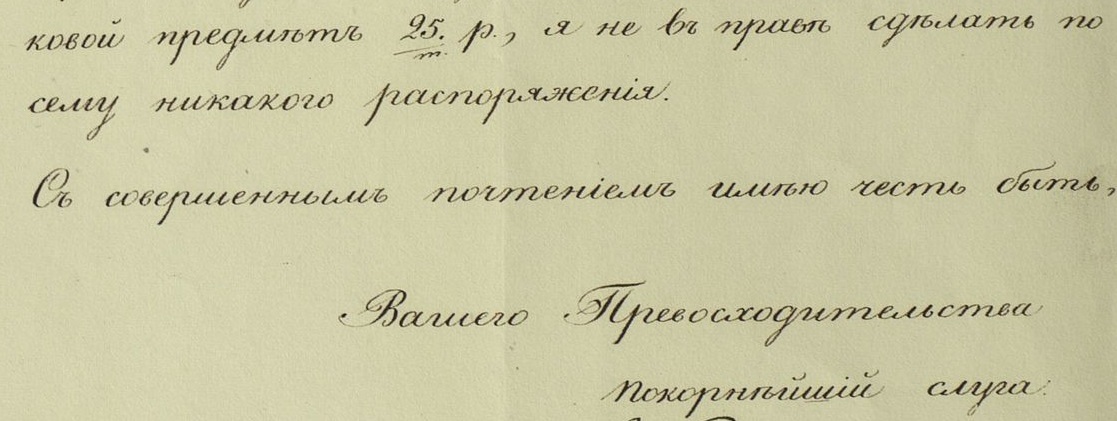 ковой предметъ 25. р., я не въ правѣ сдѣлать по
т.
сему никакого распоряженія.
Съ совершеннымъ почтеніемъ имѣю честь быть,
Вашего Превосходительства
покорнѣйшій слуга